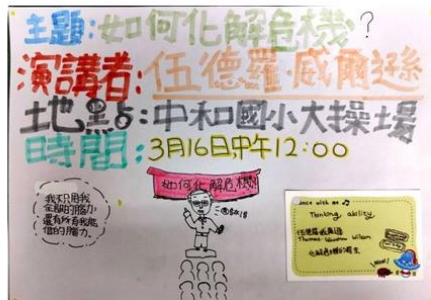 主題:如何化解危機?
演講者:伍德羅·威爾遜
地點:中和國小大操場
時間:3月16日中午12:00
如何化解危機?
我不只用我
全部的腦力,
還有所有我能
借的腦力。
Dance with me
Thinking ability
伍德羅威爾遜
Thomas Woodrow Wilson